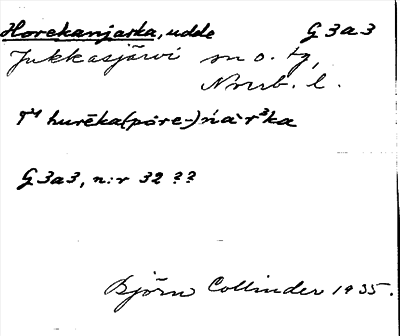 Horekanjarka, udde G 3a3
Jukkasjärvi sn o. tg,
Norrb. l.
hurēka(påre-)ńàr³ka
G 3a3, n:r 32 ??
Björn Collinder 1935.